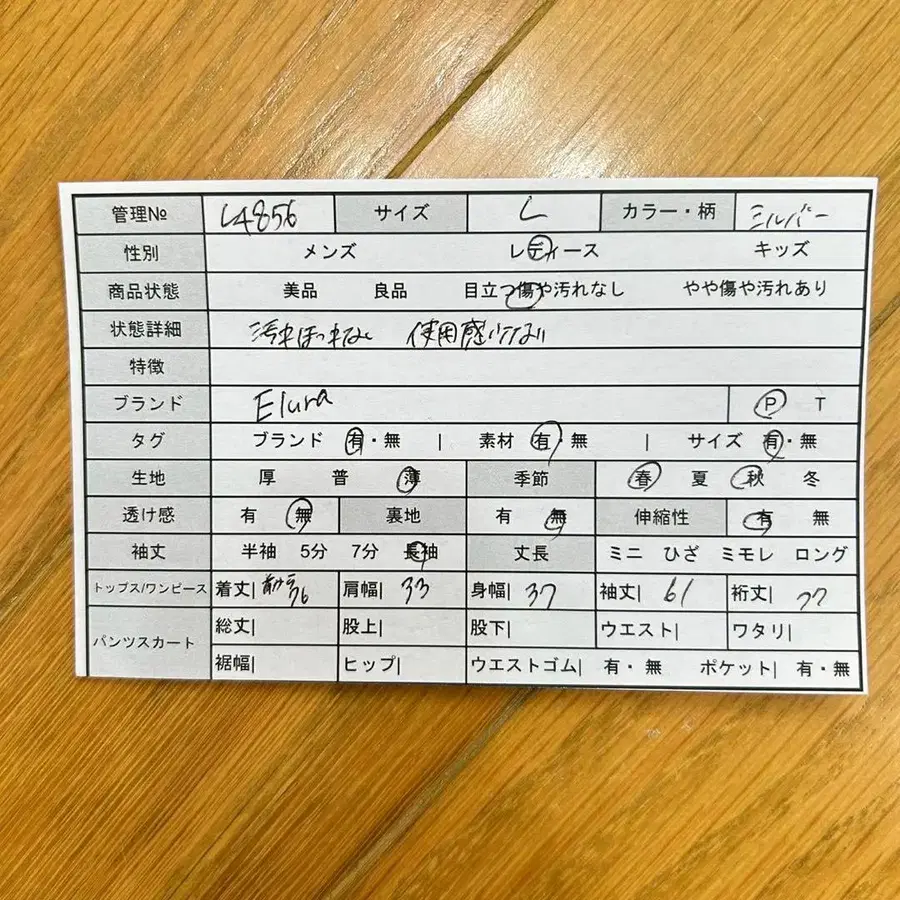 管理№ L4856 サイズ L カラー・柄 シルバー
性別 メンズ レディース キッズ
商品状態 美品 良品 目立つ傷や汚れなし やや傷や汚れあり
状態詳細 汚れほつれなし 使用感少ない
特徴
ブランド Elura P T
タグ ブランド 有・無 | 素材 有・無 | サイズ 有・無
生地 厚 普 薄 季節 春 夏 秋 冬
透け感 有 無 裏地 有 無 伸縮性 有 無
袖丈 半袖 5分 7分 長袖 丈長 ミニ ひざ ミモレ ロング
トップス/ワンピース 着丈| 肩幅| 33 身幅| 37 袖丈| 61 裄丈| 77
パンツスカート 総丈| 股上| 股下| ウエスト| ワタリ|
裾幅| ヒップ| ウエストゴム| 有・無 ポケット| 有・無